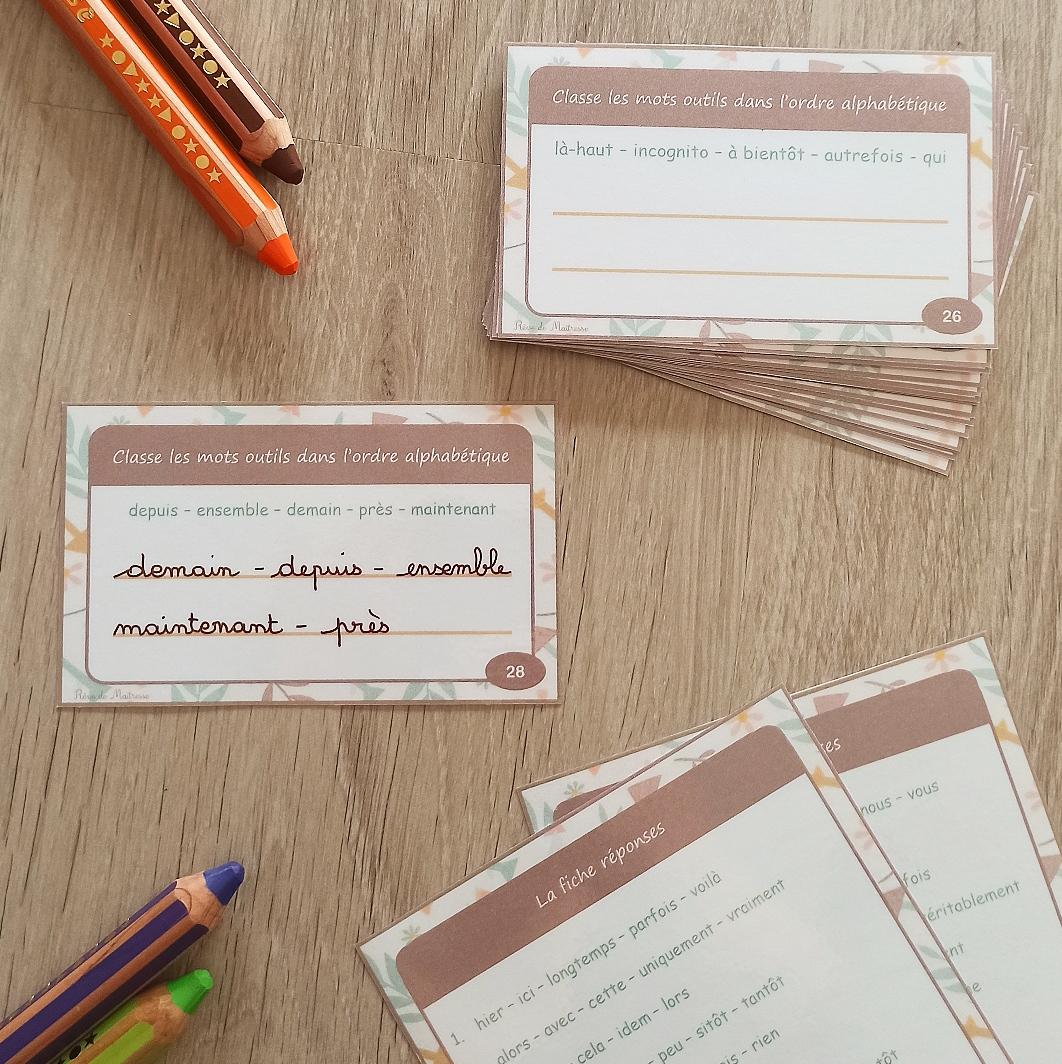 Classe les mots outils dans l'ordre alphabétique
là-haut - incognito - à bientôt - autrefois - qui
26
Rêve de Maîtresse
Classe les mots outils dans l'ordre alphabétique
depuis - ensemble - demain - près - maintenant
demain - depuis - ensemble
maintenant - près
28
Rêve de Maîtresse
La fiche réponses
1. hier - ici - longtemps - parfois - voilà
alors - avec - cette - uniquement - vraiment
cela - idem - lors
- peu - sitôt - tantôt
- rien
nous - vous